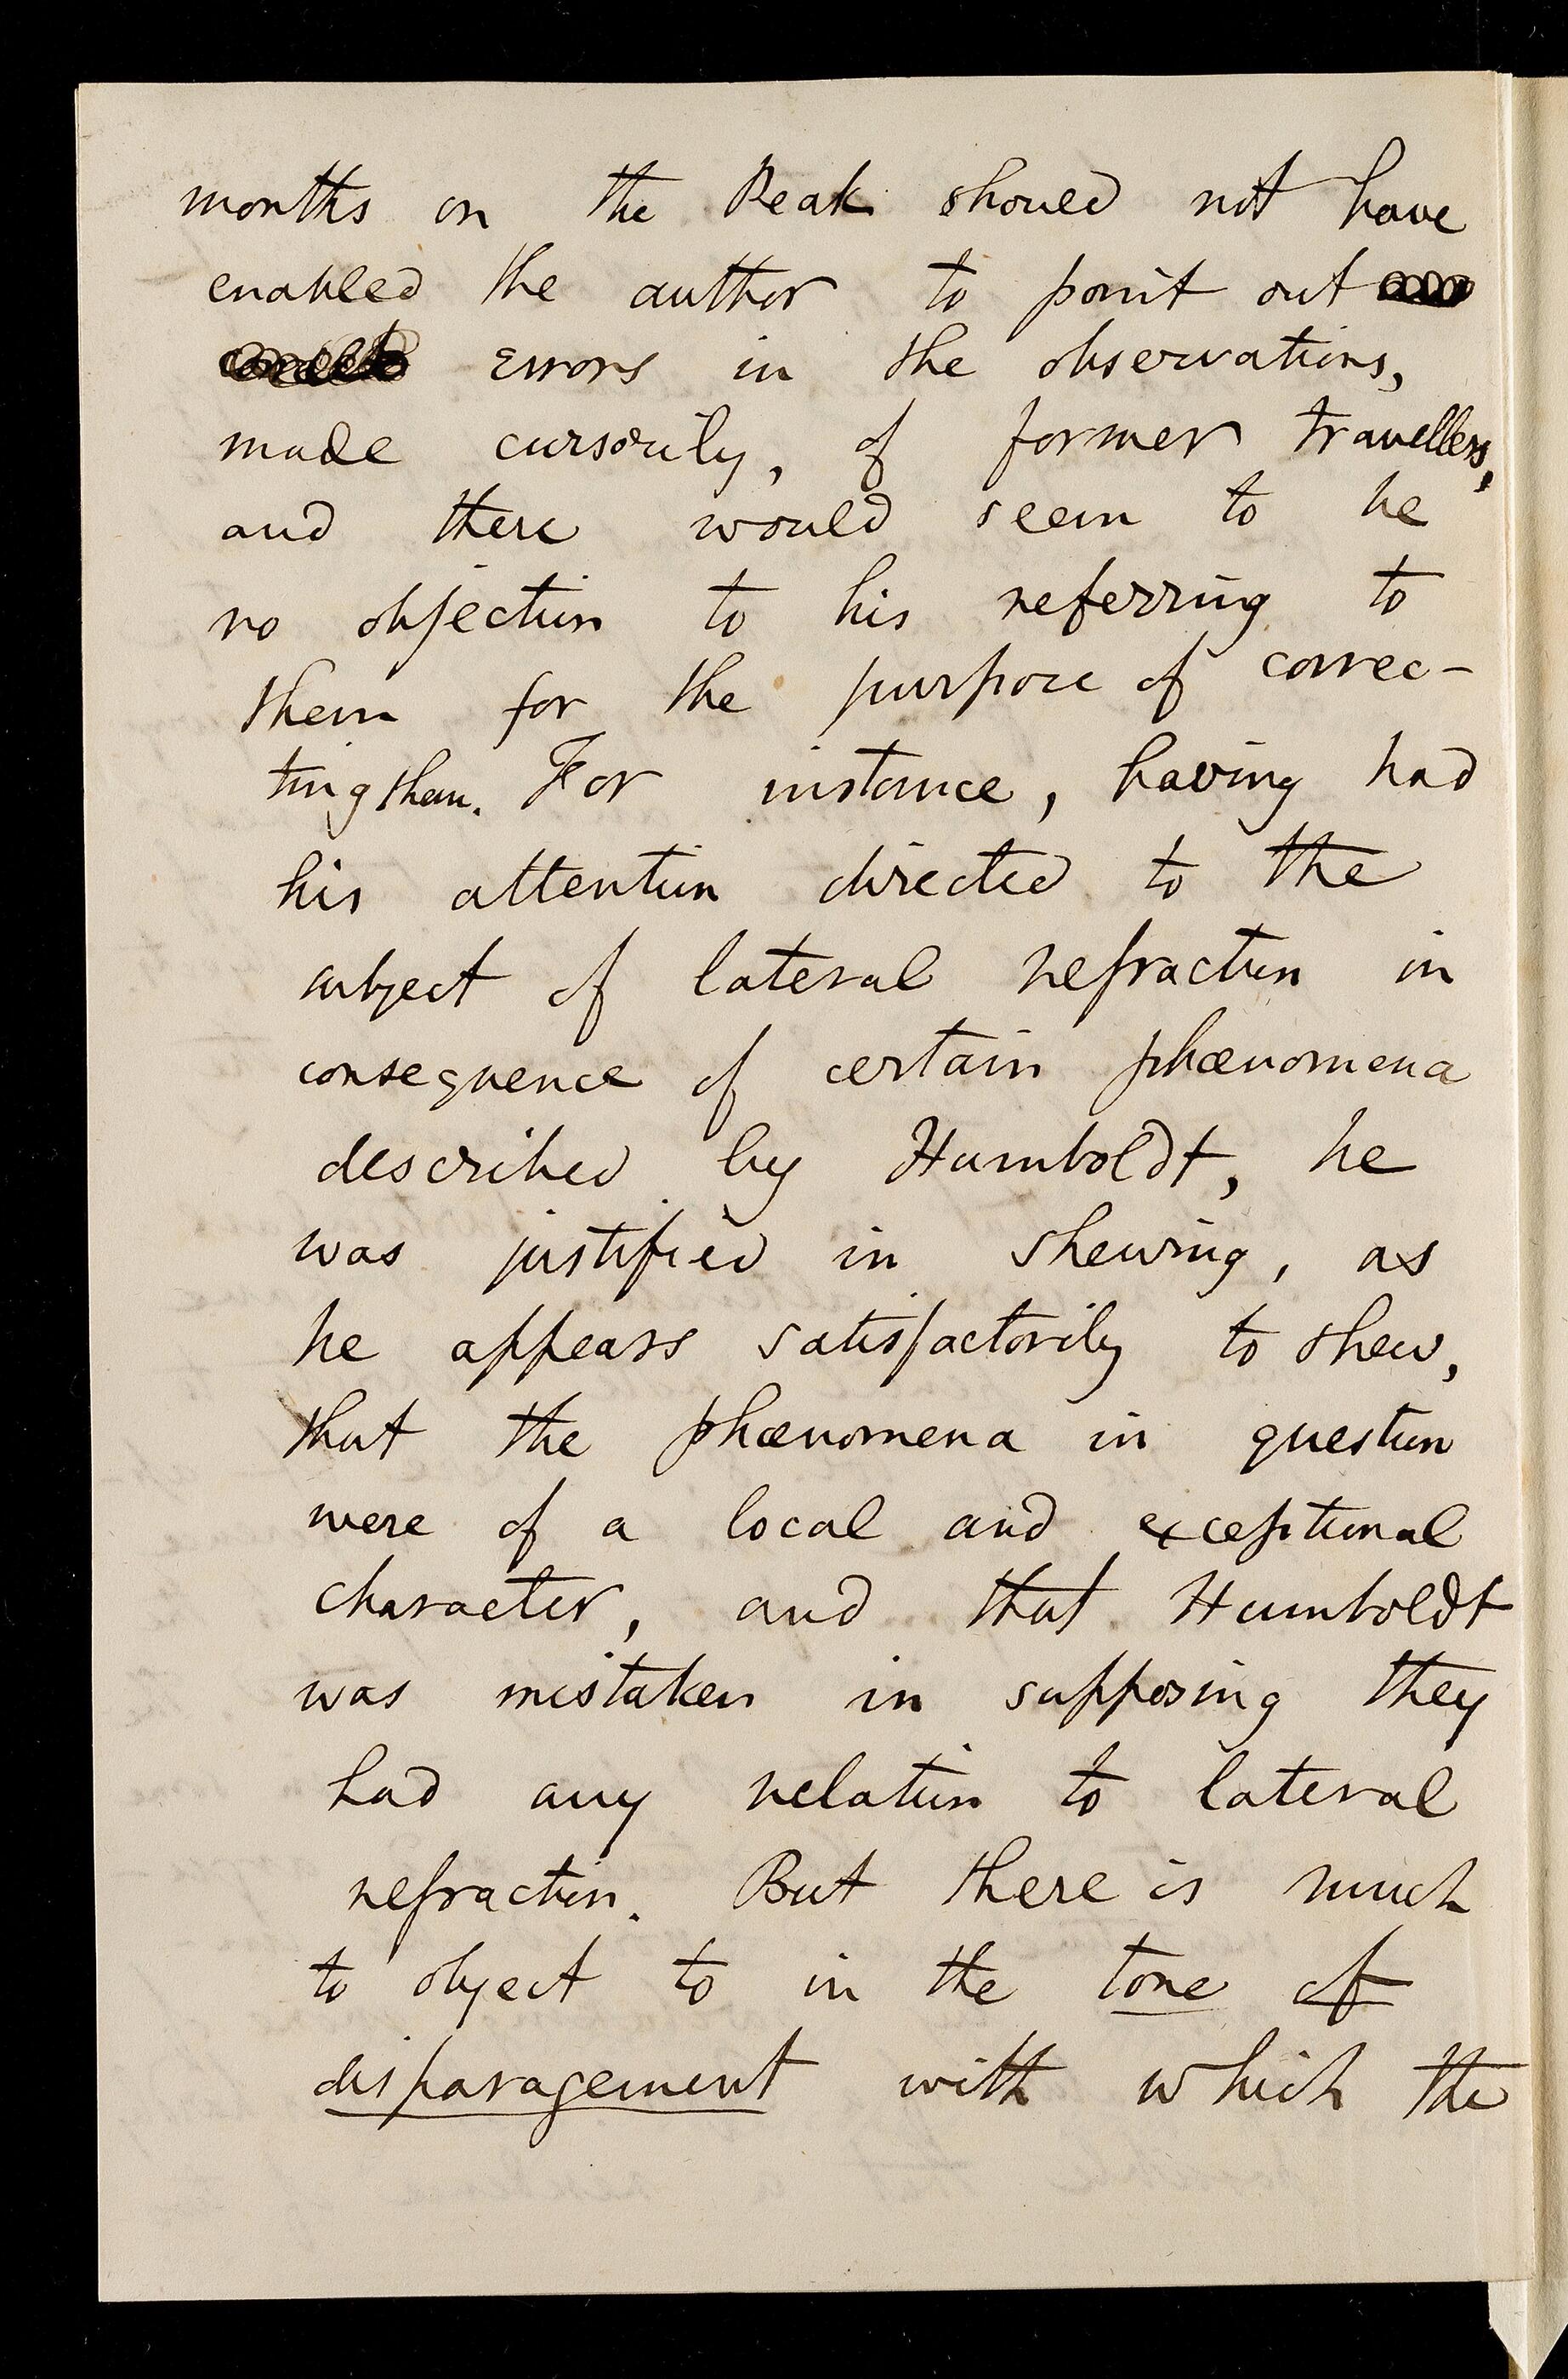 months on the Peak should not have
enabled the author to point out
errors in the observations,
made cursorily, of former travellers,
and there would seem to be
no objection to his referring to
them for the purpose of correc-
ting them. For instance, having had
his attention directed to the
subject of lateral refraction in
consequence of certain phænomena
described by Humboldt, he
was justified in shewing, as
he appears satisfactorily to shew,
that the phænomena in question
were of a local and exceptional
character, and that Humboldt
was mistaken in supposing they
had any relation to lateral
refraction. But there is much
to object to in the tone of
disparagement with which the